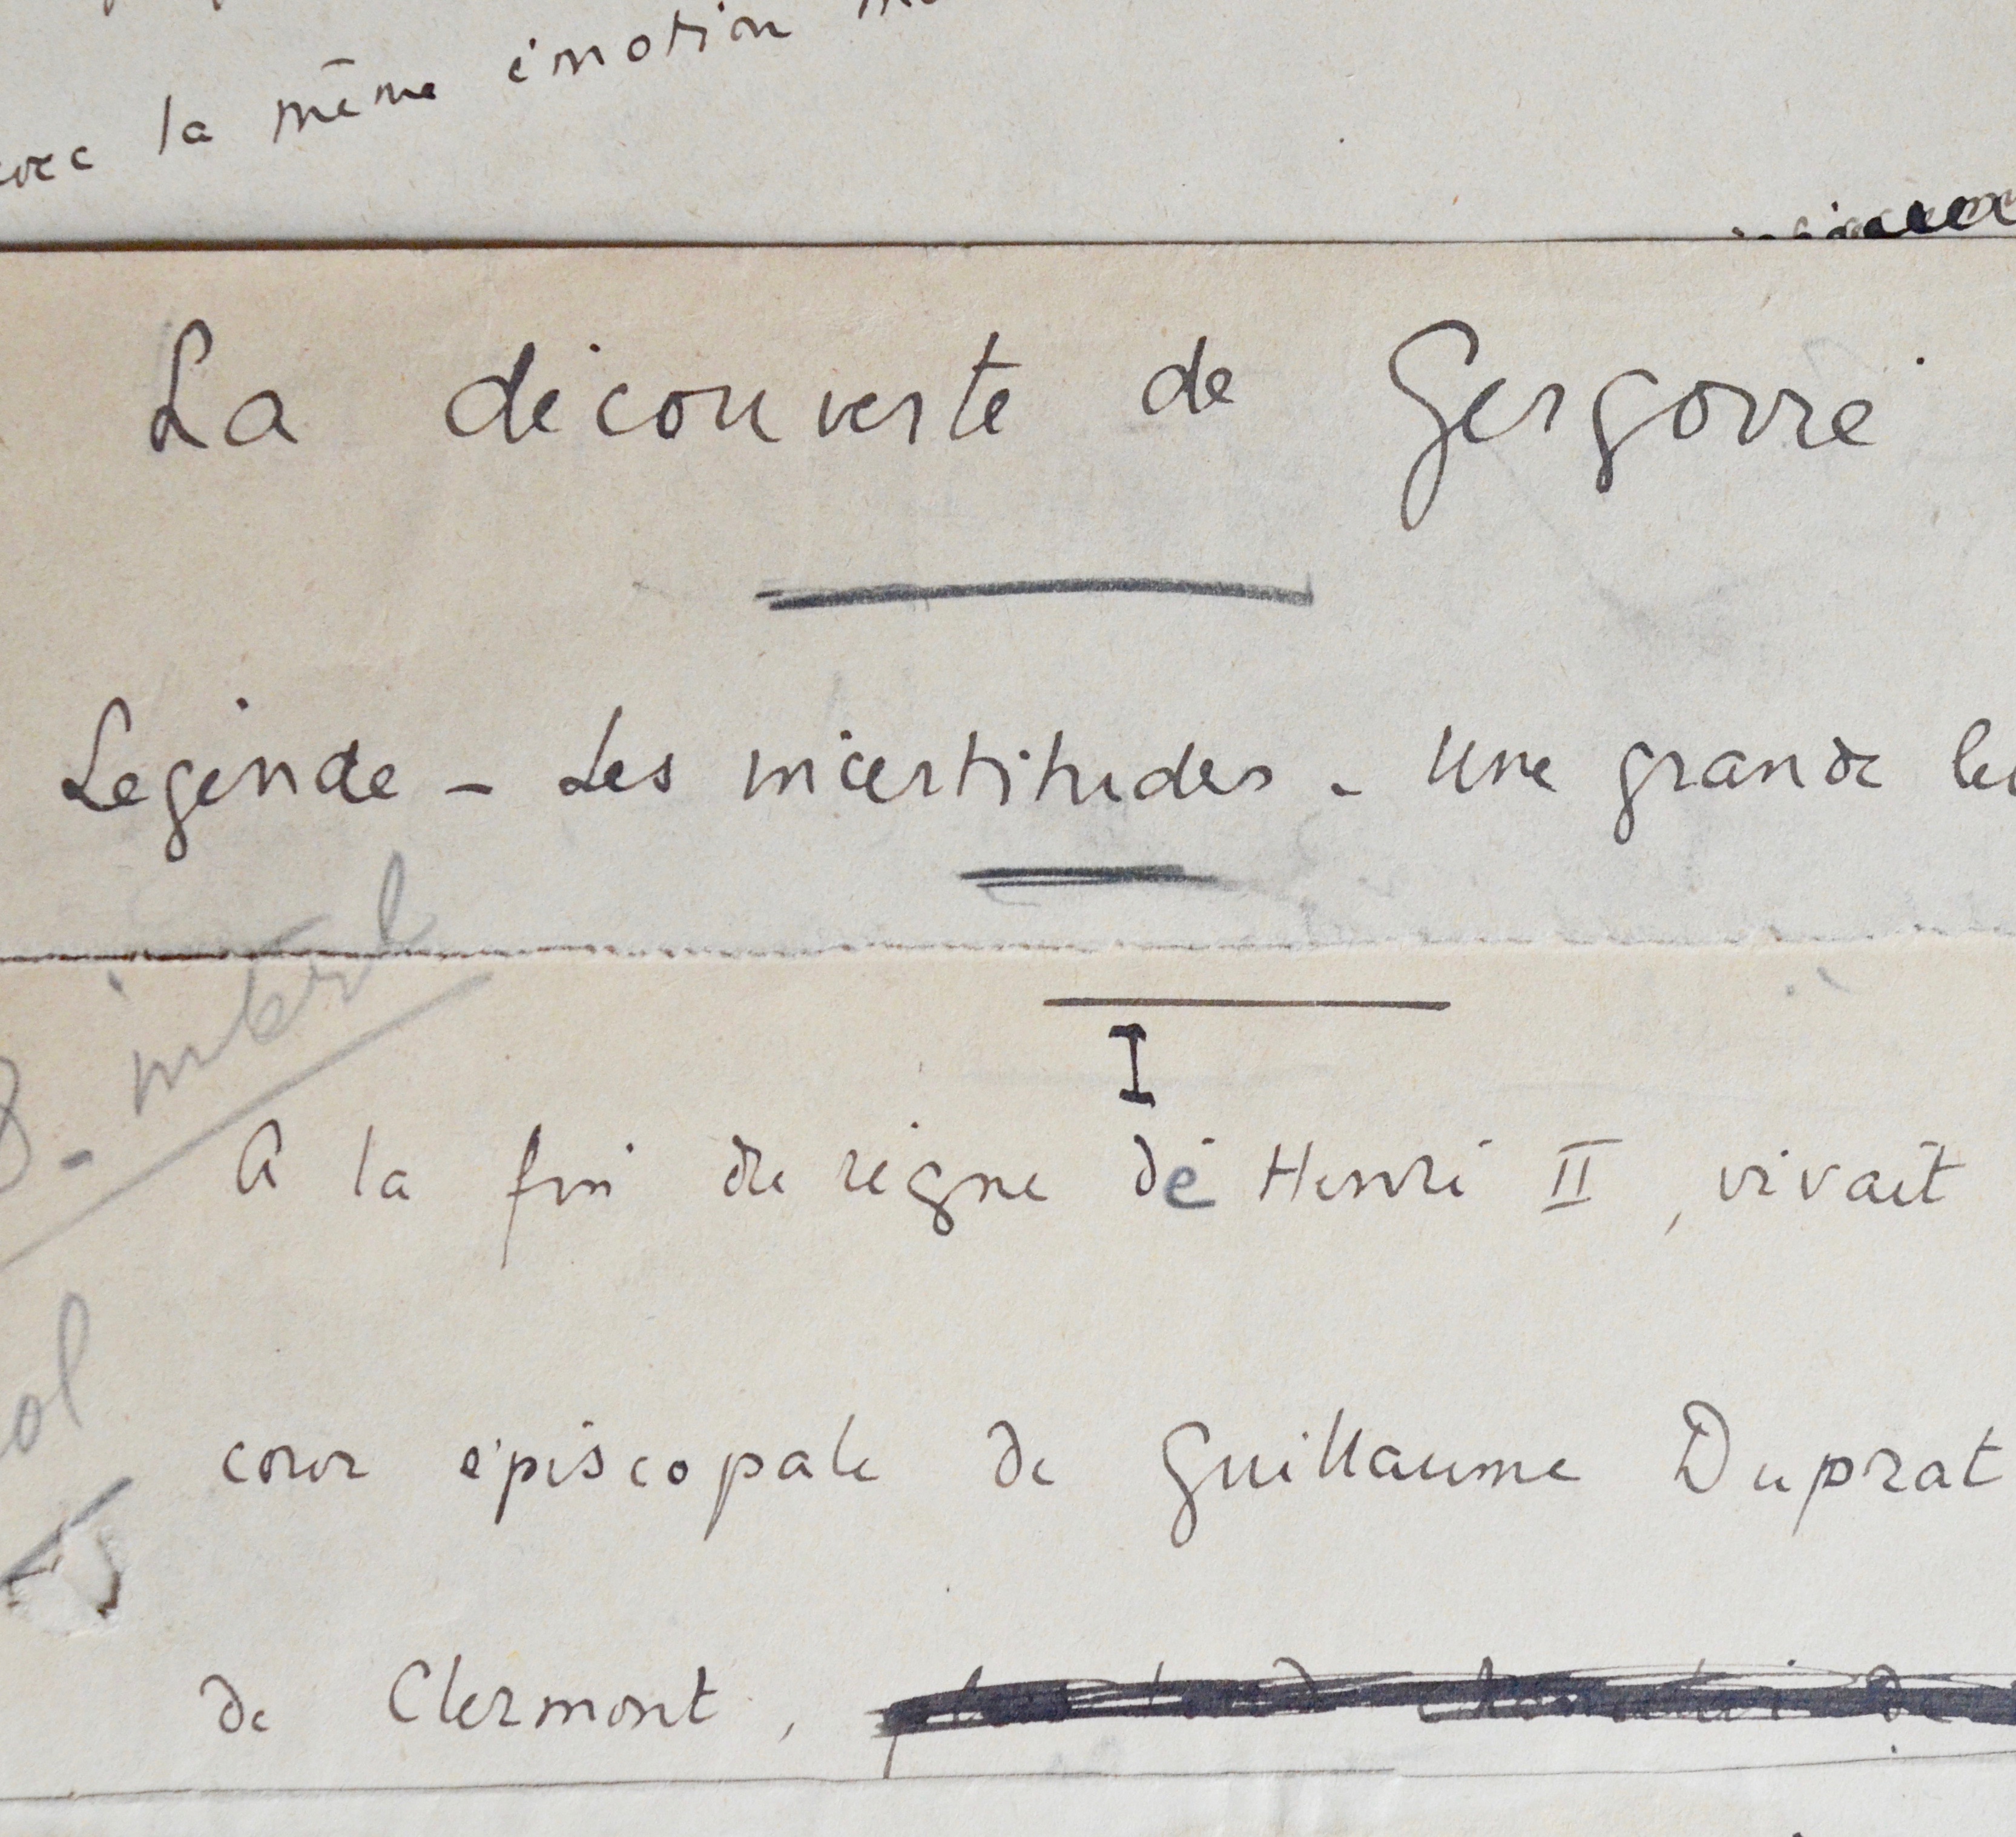 avec la même émotion
La découverte de Gergovie
Légende - Les incertitudes - Une grande
8 - interl
I
A la fin du règne de Henri II, vivait
ol
cour épiscopale de Guillaume Duprat
de Clermont,